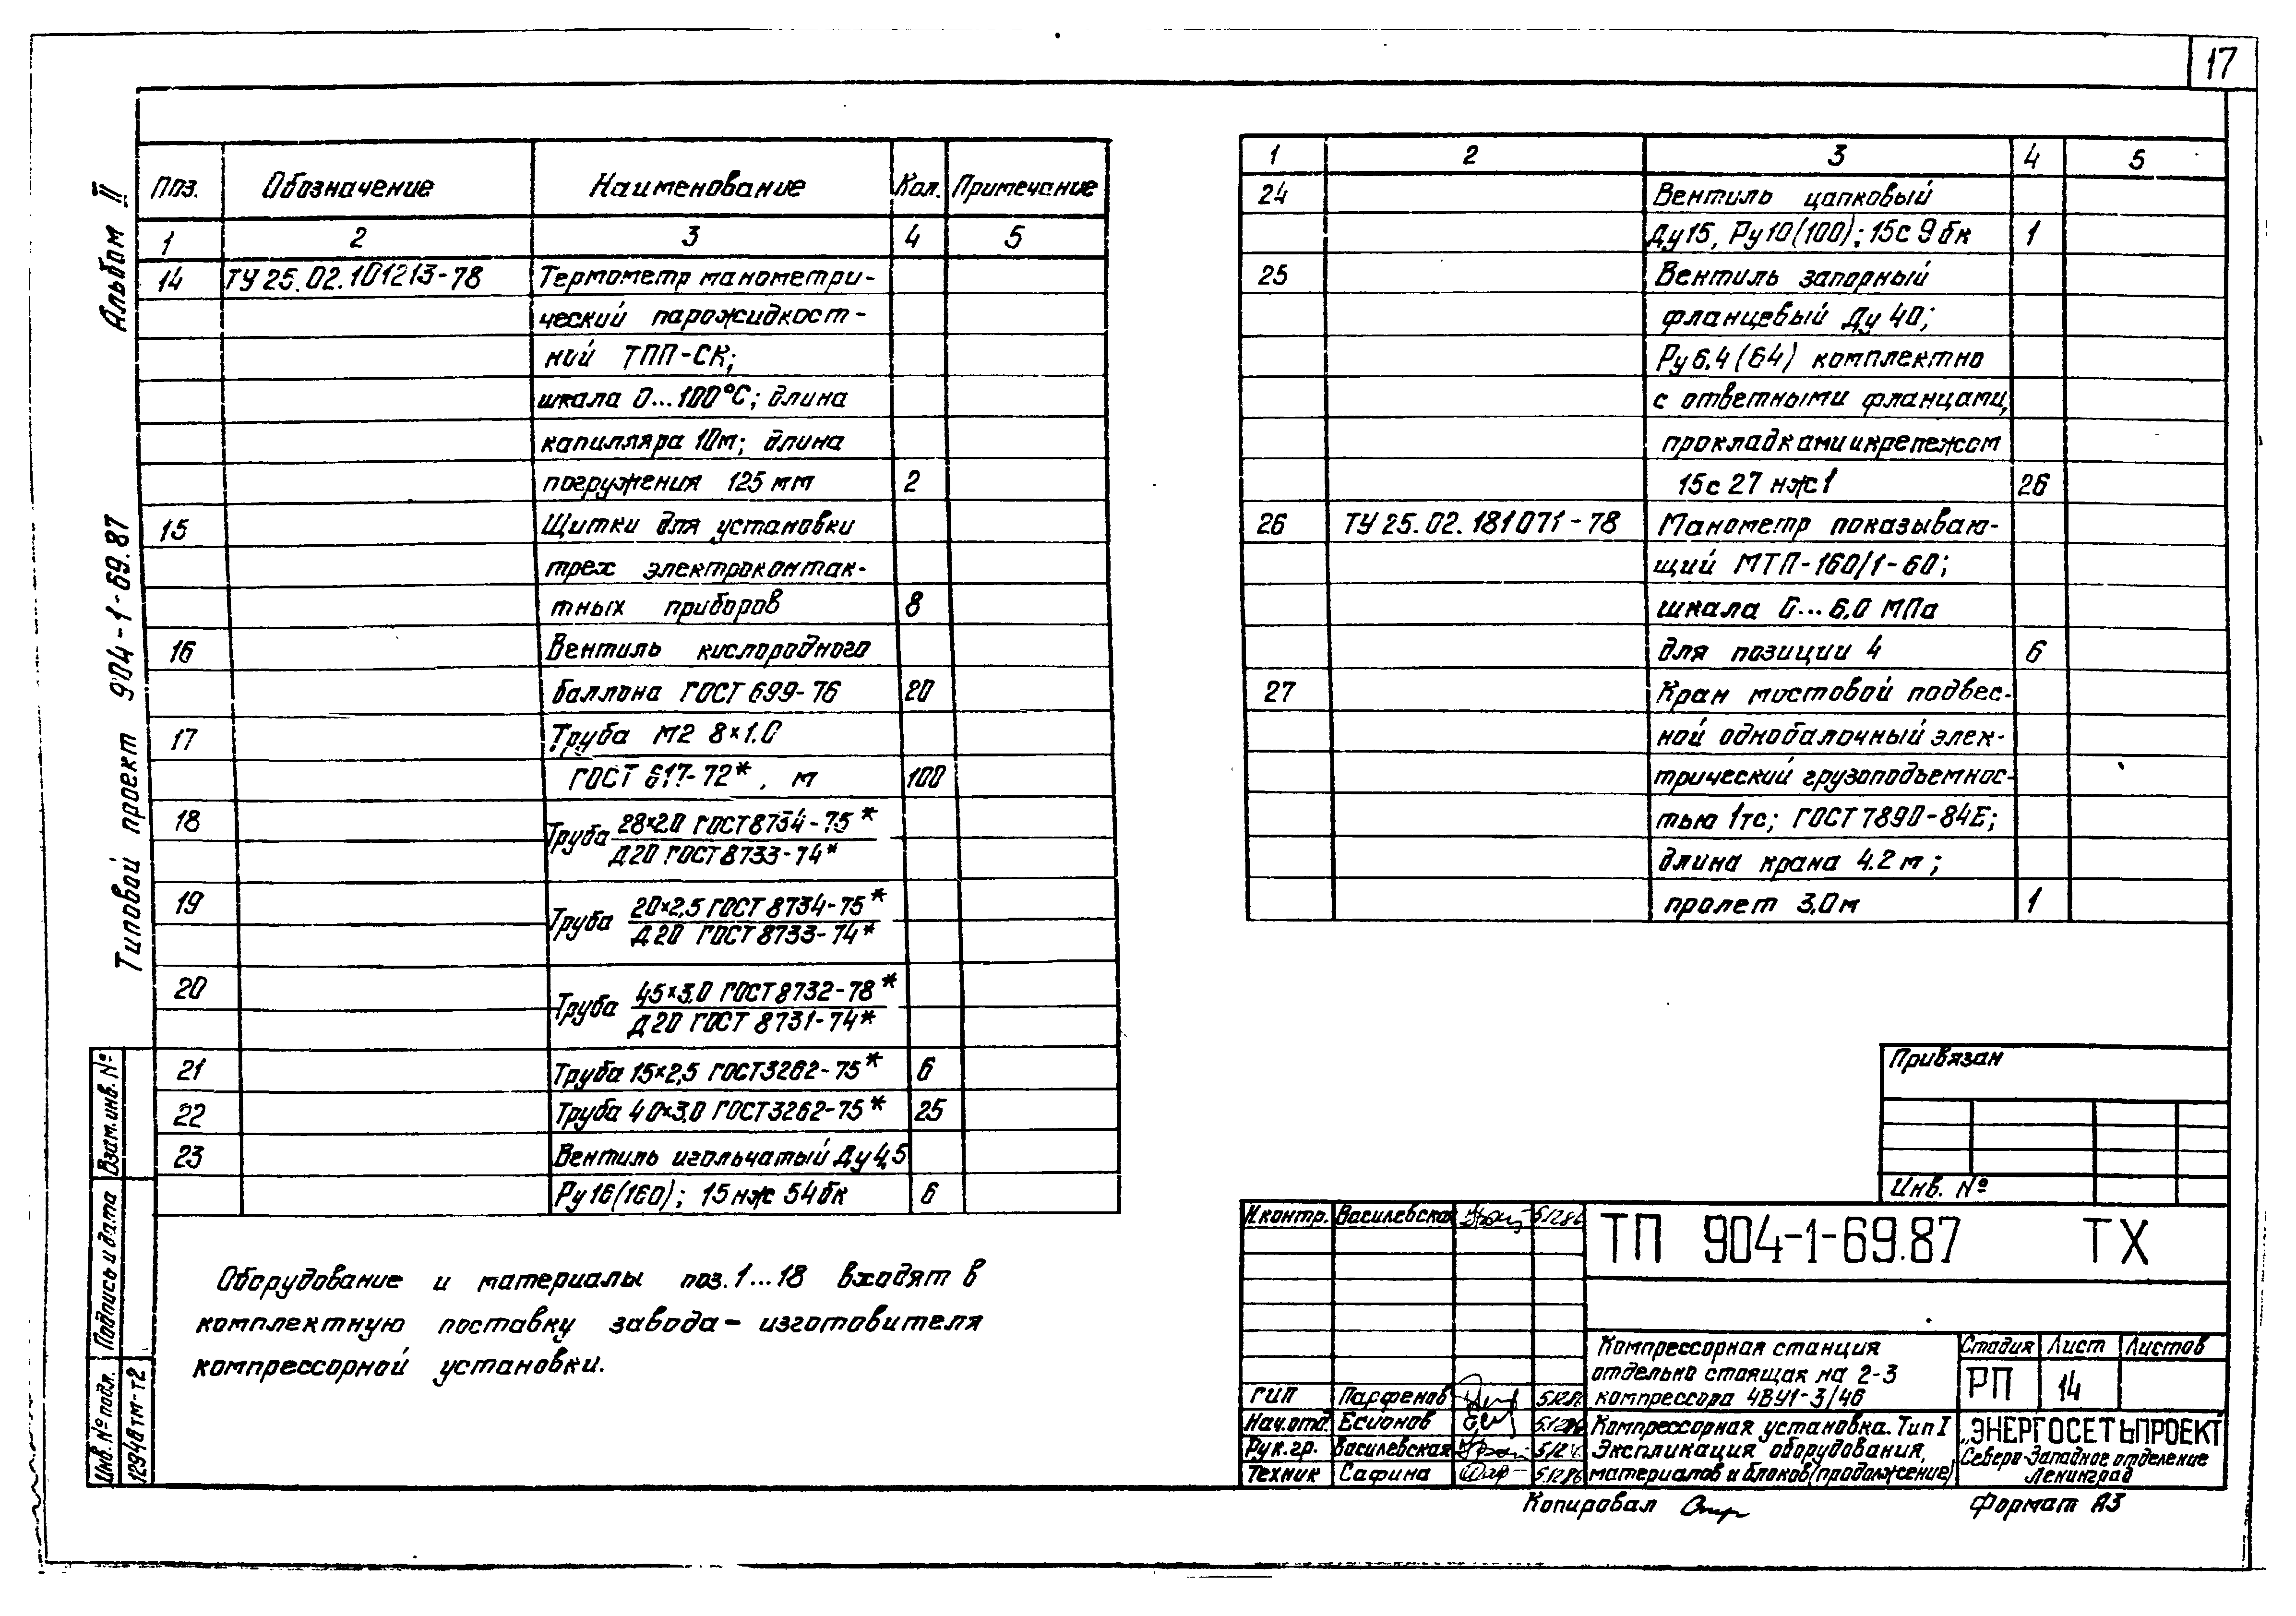 17
Альбом II
Типовой проект 904-1-69.87
Поз. Обозначение Наименование Кол. Примечание
1 2 3 4 5
14 ТУ 25.02.101213-78 Термометр манометри-
ческий парожидкост-
ний ТПП-СК;
шкала 0...100°С; длина
капилляра 10м; длина
погружения 125 мм 2
15 Щитки для установки
трех электроконтак-
тных приборов 8
16 Вентиль кислородного
баллона ГОСТ 699-76 20
17 Труба М2 8×1.0
ГОСТ 617-72*, м 100
18 Труба 28×2.0 ГОСТ 8734-75*
Д20 ГОСТ 8733-74*
19 Труба 20×2,5 ГОСТ 8734-75*
Д20 ГОСТ 8733-74*
20 Труба 45×3,0 ГОСТ 8732-78*
Д20 ГОСТ 8731-74*
21 Труба 15×2,5 ГОСТ 3262-75* 6
22 Труба 40×3,0 ГОСТ 3262-75* 25
23 Вентиль игольчатый Ду 4,5
Ру 16(160); 15нж 54бк 6
Оборудование и материалы поз. 1...18 входят в
комплектную поставку завода-изготовителя
компрессорной установки.
1 2 3 4 5
24 Вентиль цапковый
Ду15, Ру10(100); 15с 9бк 1
25 Вентиль запорный
фланцевый Ду 40;
Ру 6.4 (64) комплектно
с ответными фланцами,
прокладками и крепежом
15с 27 нж1 26
26 ТУ 25.02.181071-78 Манометр показываю-
щий МТП-160/1-60;
шкала 0...6,0 МПа
для позиции 4 6
27 Кран мостовой подвес-
ной однобалочный элек-
трический грузоподъемнос-
тью 1тс; ГОСТ 7890-84Е;
длина крана 4.2 м;
пролет 3,0м 1
Привязан
Инв. №
Взам. инв. №
Подпись и дата
Инв. № подл.
12948тм-т2
Н.контр. Василевская 5.12.86
ГИП Парфенов 5.12.86
Нач.отд. Есионов 5.12.86
Рук.гр. Василевская 5.12.86
Техник Сафина 5.12.86
ТП 904-1-69.87 ТХ
Компрессорная станция
отдельно стоящая на 2-3
компрессора 4ВУ1-3/46
Стадия Лист Листов
РП 14
Компрессорная установка. Тип I
Экспликация оборудования,
материалов и блоков (продолжение)
"ЭНЕРГОСЕТЬПРОЕКТ"
Северо-Западное отделение
Ленинград
Копировал
Формат А3